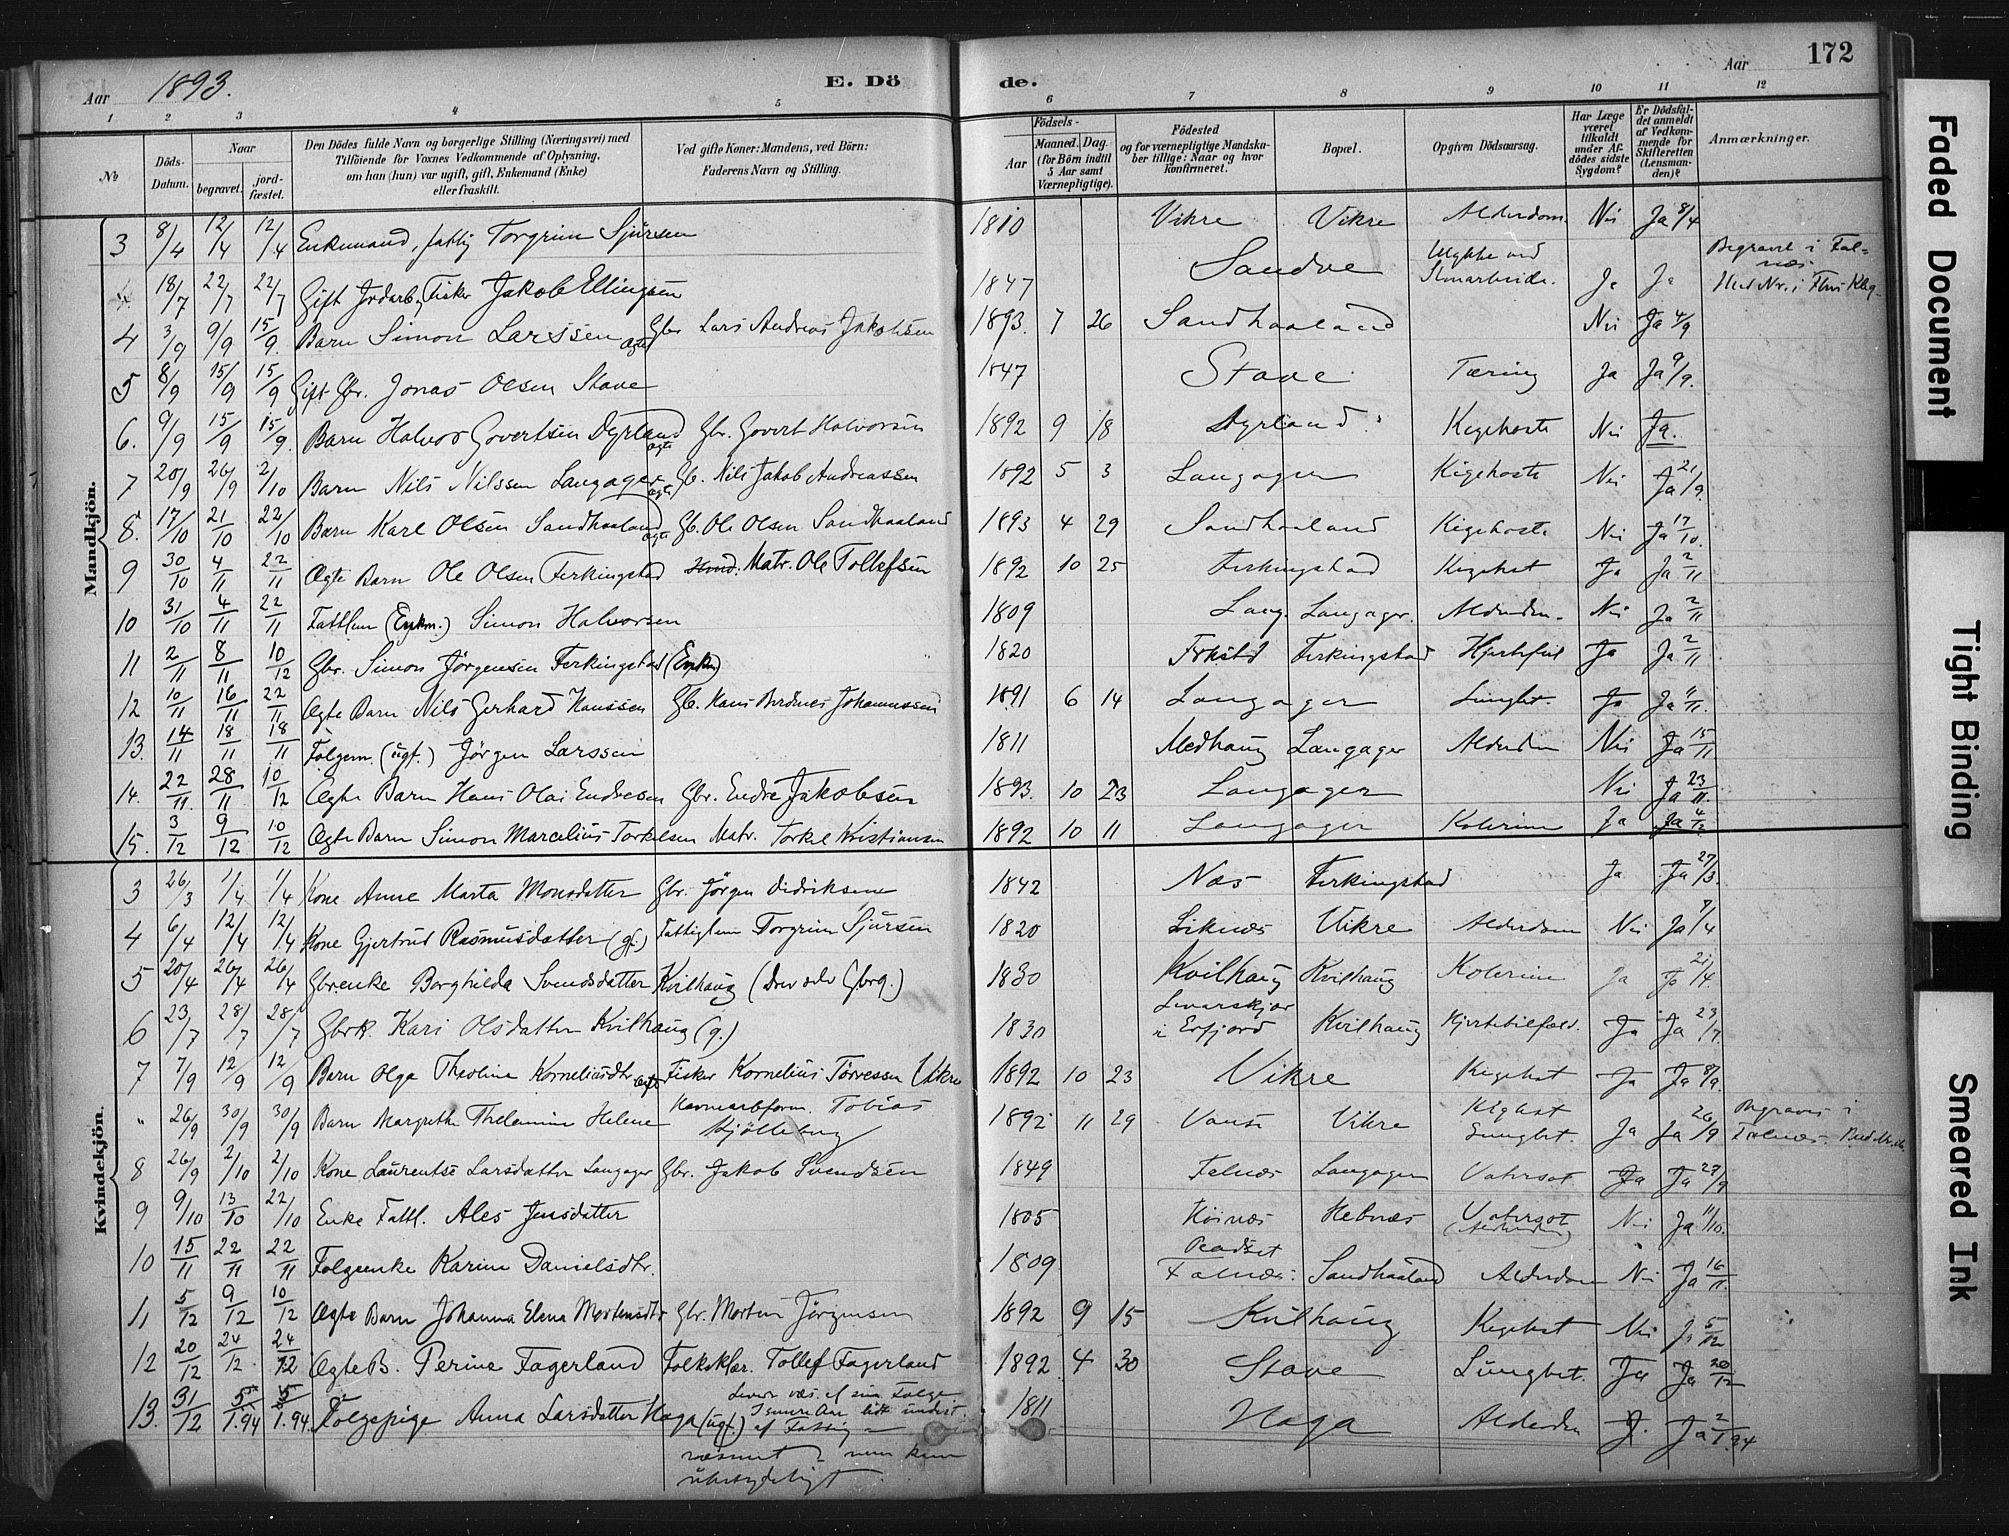 172
Aar 1893. E. Dö de. Aar
1 2 3 4 5 6 7 8 9 10 11 12
№ Döds-Datum. Naar begravet. jord-fæstet. Den Dödes fulde Navn og borgerlige Stilling (Næringsvei) med Tilföiende for Voxnes Vedkommende af Oplysning, om han (hun) var ugift, gift, Enkemand (Enke) eller fraskilt. Ved gifte Koner: Mandens, ved Börn: Faderens Navn og Stilling. Födsels- Aar Maaned. Dag. (for Börn indtil 5 Aar samt Værnepligtige). Födested og for værnepligtige Mandska-ber tillige: Naar og hvor konfirmeret. Bopæl. Opgiven Dödsaarsag. Har Læge været tilkaldt under Af-dödes sidste Sygdom? Er Dödsfal-det anmeldt af Vedkom-mende for Skifteretten (Lensman-den)? Anmærkninger.
Mandkjön.
3 8/4 12/4 12/4 Enkemand, fattig Torgrim Sjursen 1810 Vikre Vikre Alderdom. Nei Ja 8/4
18/7 22/7 22/7 Gift Jordarb., Fisker Jakob Ellingsen 1847 Sandve Ulykke ved Ja Ja Begravet i Fal-næs
4 3/9 9/9 15/9. Barn Simon Larssen ægte Gbr Lars Andreas Jakobsen 1893. 7 26 Sandhaaland Nei Ja 4/9
5 8/9 15/9 15/9 Gift Gbr. Jonas Olsen Stave 1847 Stave Tæring Ja Ja 9/9.
6. 9/9 15/9 15/9. Barn Halvor Govertsen Dyrland ægte Gbr. Govert Halvorsen 1892 9 18 Dyrland Kigehoste Nei Ja.
7 20/9 26/9 2/10 Barn Nils Nilssen Langager ægte Gb. Nils Jakob Andreassen 1892 5 3 Langager Kigehoste Nei Ja 21/9.
8. 17/10 21/10 22/10 Barn Karl Olsen Sandhaaland ægte Gb. Ole Olsen Sandhaaland 1893 4 29 Sandhaaland Kigehoste Nei Ja 17/10.
9 30/10 4/11 22/11 Ægte Barn Ole Olsen Ferkingstad Matr. Ole Tollefsen 1892 10 25 Ferkingstad Kigehst Ja Ja 2/11
10 31/10 4/11 22/11 Fattlem (Enkm.) Simon Halvorsen 1809 Lang. Langager. Alderdom. Nei Ja 2/11
11 2/11 8/11 10/12 Gbr. Simon Jörgensen Ferkingstad (Enkm) 1820 Frkstd Ferkingstad Hjertefeil Ja Ja 2/11
12 10/11 16/11 22/11 Ægte Barn Nils Gerhard Hanssen Gb. Hans Johannessen 1891 6 14 Langager Lungbt. Ja Ja 11/11.
13. 14/11 18/11 18/11 Folgem. (ugf.) Jörgen Larssen 1811 Medhaug Langager Alderdom Nei Ja 15/11
14. 22/11 28/11 10/12 Ægte Barn Hans Olai Endresen Gbr. Endre Jakobsen 1893. 10 23 Langager Nei Ja 23/11.
15. 3/12 9/12 10/12 Ægte Barn Simon Marcelius Torkelsen Matr. Torkel Kristiansen 1892 10 11 Langager Kolerine Ja Ja 4/12
Kvindekjön.
3 26/3 1/4 1/4 Kone Anne Marta Monsdatter Gbr. Jörgen Didriksen 1842 Næs Ferkingstad Ja Ja 27/3.
4 6/4 12/4 12/4 Kone Gjertrud Rasmusdatter (gf.) Fattiglem Torgrim Sjursen 1820 Liknæs Vikre Alderdom Nei Ja 7/4
5 20/4 26/4 26/4 Gbrenke Borghilda Svendsdatter Kvilhaug 1830 Kvilhaug Kvilhaug Kolerine Ja Ja 21/4.
6 23/7 28/7 28/7 Gbrk. Kari Olsdatter Kvilhaug (g.) 1830 i Erfjord Kvilhaug Ja Ja 23/7.
7 7/9 12/9 12/9 Barn Olga Theoline Korneliusdtr ægte Fisker Kornelius Torressen Vikre 1892 10 23 Vikre Kigehst Ja Ja 8/9.
" 26/9 30/9 30/9 Barn Margrethe Thelamine Helene Tobias 1892 11 29 Vanse Vikre Kighst Lungbet. Ja Ja 26/9 Begraves i Falnæs.
8 26/9 2/10 2/10 Kone Laurentse Larsdatter Langager Gbr. Jakob Svendsen 1849 Falnæs Langager Vatersot Ja Ja 27/9
9 9/10 13/10 22/10 Enke Fattl. Ales Jensdatter 1805 Hebnæs Vatersot (Alderdom) Nei Ja 11/10.
10 15/11 22/11 22/11 Folgeenke Karine Danielsdtr. 1809 Falnæs. Sandhaaland Alderdom Nei Ja 16/11.
11 5/12 9/12 10/12 Ægte Barn Johanna Elena Mortensdtr Gbr. Morten Jörgensen 1892 9 15 Kvilhaug Kigehst Nei Ja 5/12
12 20/12 24/12. 24/12 Ægte B. Perine Fagerland Folkeskler. Tollef Fagerland 1892 4 30 Stave Lungbet. Ja Ja 20/12
13. 31/12 5/1.94 5/1.94. Folgepige Anna Larsdatter Haga (ugf.) 1811 Haga Alderdm J. Ja 2/1.94
Faded Document
Tight Binding
Smeared Ink